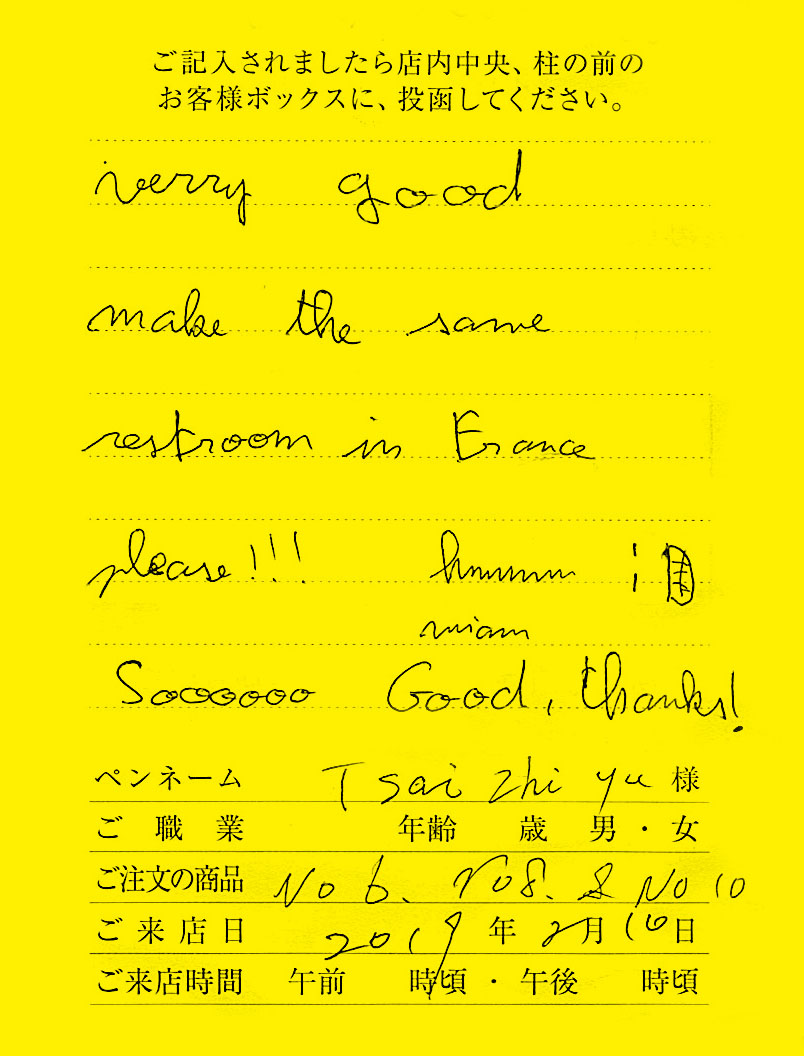 ご記入されましたら店内中央、柱の前の
お客様ボックスに、投函してください。
verry good
make the same
restroom in France
please!!! hmmmmm
miam
Soooooo Good, thanks!
ペンネーム Tsai Zhi yu 様
ご職業 年齢 歳 男・女
ご注文の商品 No 6. No 8. & No 10
ご来店日 2019年2月10日
ご来店時間 午前 時頃・午後 時頃